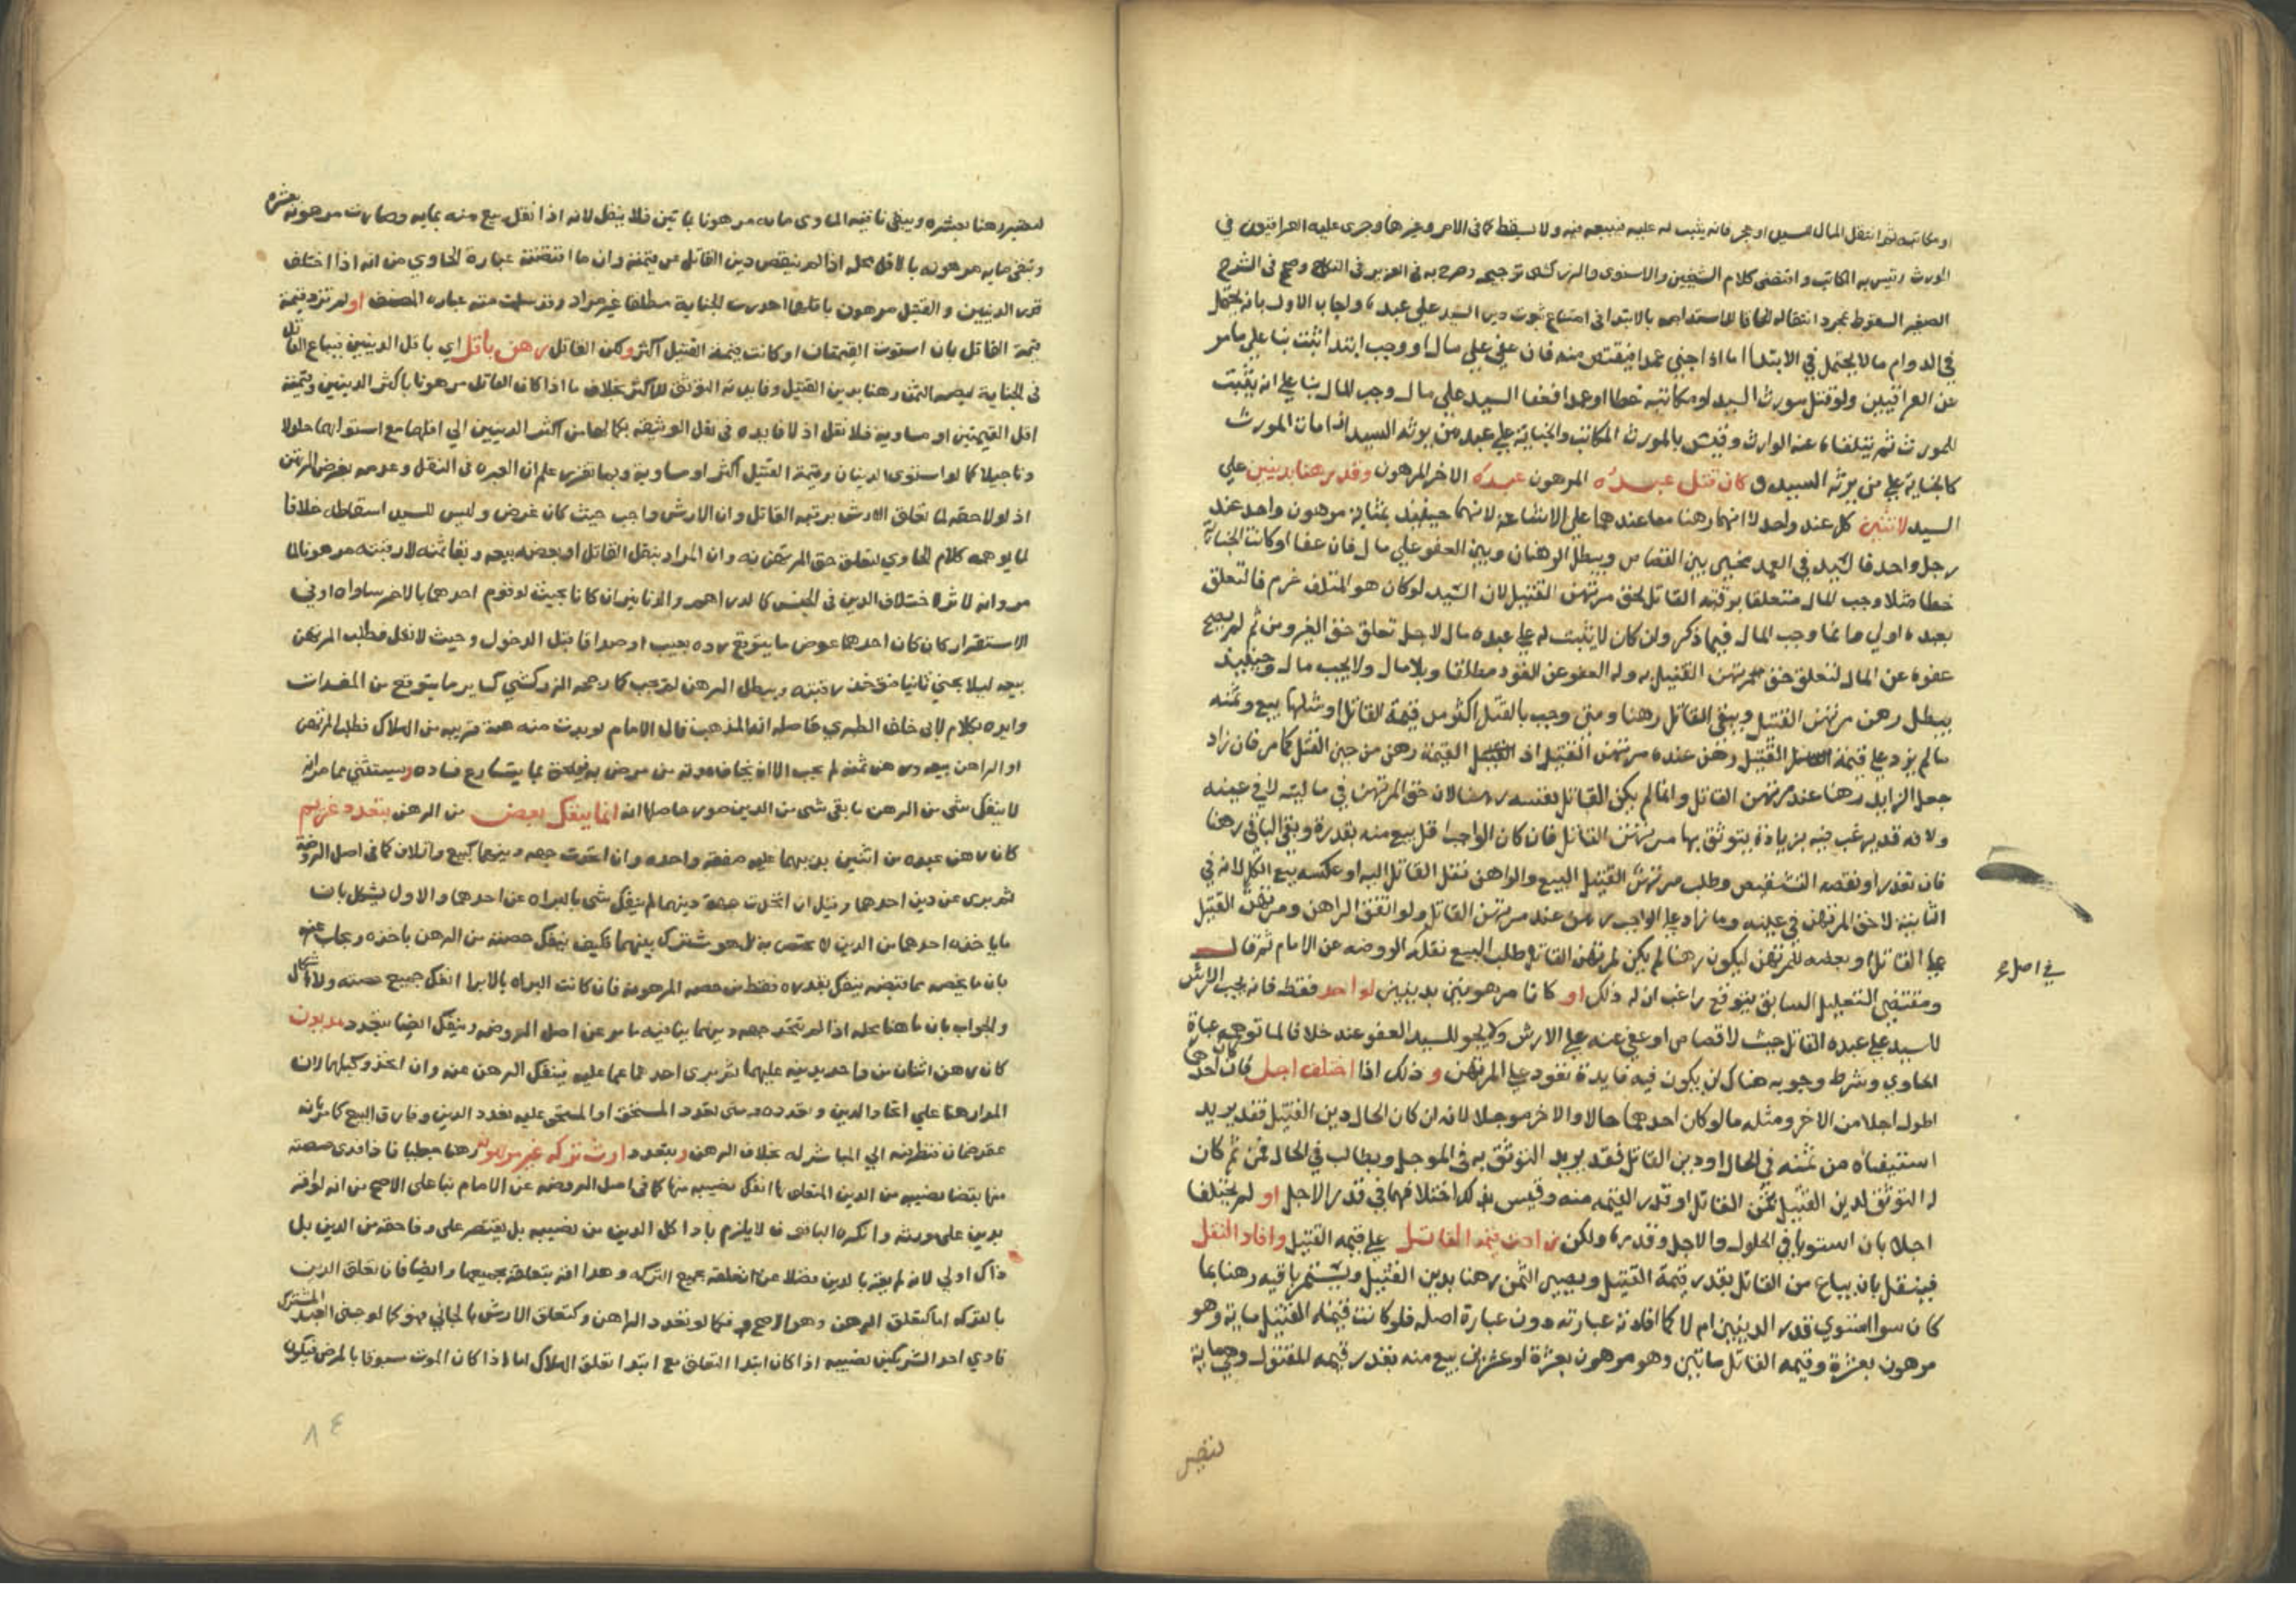 او مكاتبه ثم انتقل المال للسيد او عجز فانه يثبت له عليه فيبيعه فيه ولا يسقط كما في الام وغيرها وجرى عليه العراقيون في
المورث وقيس به المكاتب واقتضى كلام الشيخين والاسنوي والزركشي ترجيحه وصرح به في العزيز في النكاح وصحح في الشرح
الصغير السقوط بمجرد انتقاله الحاقا للاستدامه بالابتدا في امتناع ثبوت دين السيد على عبده واجاب الاول بانه يحتمل
في الدوام ما لا يحتمل في الابتدا اما اذا جني عمدا فيقتص منه فان عفى على مال او وجب ابتدا اثبت بنا على ما مر
عن العراقيين ولو قتل مورث السيد او مكاتبه خطا او عمدا فعفا السيد على مال وجب المال بنا على انه يثبت
للمورث ثم يتلقاه عنه الوارث وقيس بالمورث المكاتب والجناية على عبد من يرثه السيد اذا مات المورث
كالجناية على من يرثه السيد و كان قتل عبده المرهون عبده الاخر المرهون وقد رهنا بدينين على
السيد لاثنين كل عند واحد لا انهما رهنا معا عندهما على الاشاعة لانهما حينئذ بمثابة مرهون واحد عند
رجل واحد فالسيد في العمد مخير بين القصاص ويبطل الرهنان وبين العفو على مال فان عفا او كانت الجناية
خطا مثلا وجب المال متعلقا برقبة القاتل لحق مرتهن القتيل لان السيد لو كان هو المتلف غرم فالتعلق
بعبده اولى وانما وجب المال فيما ذكر وان كان لا يثبت له على عبده مال لاجل تعلق حق الغير ومن ثم لم يصح
عفوه عن المال لتعلق حق مرتهن القتيل به وله العفو عن القود مطلقا وبلا مال ولا يجب مال وحينئذ
يبطل رهن مرتهن القتيل ويبقى القاتل رهنا ومتى وجب بالقتل اكثر من قيمة القاتل او مثلها بيع وثمنه
ما لم يزد على قيمة القتيل رهن عنده مرتهن القتيل اذ القتيل القيمة رهن من حين القتل كما مر فان زاد
جعل الزايد رهنا عند مرتهن القاتل وانما لم يكن القاتل بنفسه رهنا لان حق المرتهن في ماليته لا في عينه
ولانه قد يرغب فيه بزيادة يتوثق بها مرتهن القاتل فان كان الواجب اقل بيع منه بقدره وبقي الباقي رهنا
فان تعذر او نقصه التشقيص وطلب مرتهن القتيل البيع والراهن نقل القاتل اليه او عكسه بيع الكل لانه في
الثانية لا حق المرتهن في عينه وما زاد على الواجب رهن عند مرتهن القاتل ولو اتفق الراهن ومرتهن القتيل
على القاتل او بعضه للمرتهن ليكون رهنا لم يكن لمرتهن القاتل طلب البيع نقله الروضه عن الامام ثم قال
في اصل
ومقتضى التعليل السابق بتوقع راغب ان له ذلك او كانا مرهونين بدينين لواحد فقط فانه يجب الارش
للسيد على عبده القاتل حيث لا قصاص او عفي عنه على الارش ولا يجوز للسيد العفو عنه خلافا لما توهمه عبارة
الحاوي وشرط وجوبه هنا ان يكون فيه فايدة تعود على المرتهن و ذلك اذا اختلف اجل كان احدهما
اطول اجلا من الاخر ومثله ما لو كان احدهما حالا والاخر موجلا لانه ان كان الحال دين القتيل فقد يريد
استيفاه من ثمنه في الحال او دين القاتل فقد يريد التوثق به في الموجل ويطالب في الحال فمن ثم كان
له التوثق لدين القتيل بثمن القاتل او قدر القيمه منه وقيس بذلك اختلافهما في قدر الاجل او لم يختلفا
اجلا بان استويا في الحلول والاجل وقدره ولكن زادت قيمة القاتل على قيمه القتيل وافاد النقل
فينقل بان يباع من القاتل بقدر قيمة القتيل ويصير الثمن رهنا بدين القتيل ويستمر باقيه رهنا بما
كان سوا استوى قدر الدينين ام لا كما افادته عبارته دون عبارة اصله فلو كانت قيمة القتيل ماية وهو
مرهون بعشرة وقيمه القاتل مايتين وهو مرهون بعشرة او عشرين بيع منه بقدر قيمه المقتول وهي ماية
لتصير
لتصير رهنا بعشره ويبقى باقيه المساوي مايه مرهونا بمايتين فلا ينقل لانه اذا نقل بيع منه بمايه وصارت مرهونة بعشره
وتبقى مايه مرهونه بالاقل محله اذا لم ينقص دين القاتل عن قيمته وان ما اقتضته عبارة الحاوي من انه اذا اختلف
قدر الدينين والقتيل مرهون باقلهما اهدرت الجناية مطلقا غير مراد وقد سلمت منه عباره المصنف او لم تزد قيمة
قيمة القاتل بان استوت القيمتان او كانت قيمة القتيل اكثر ولكن القاتل رهن باقل اي باقل الدينين فيباع القاتل
في الجناية ليصير الثمن رهنا بدين القتيل وفايدته التوثق للاكثر بخلاف ما اذا كان القاتل مرهونا باكثر الدينين وقيمته
اقل القيمتين او مساوية فلا نقل اذ لا فايده في نقل الوثيقة بكمالها من اكثر الدينين الى اقلهما مع استوايهما حلولا
وتاجيلا كما لو استوى الدينان وقيمة القتيل اكثر او مساوية وبما تقرر علم ان العبره في النقل وعدمه بغرض المرتهن
اذ لولا حقه لما تعلق الارش برقبة القاتل وان الارش واجب حيث كان غرض وليس للسيد اسقاطه خلافا
لما يوهمه كلام الحاوي لتعلق حق المرتهن به وان المراد بنقل القاتل او بعضه بيعه وبقا ثمنه لا رقبته مرهونا لما
مر وانه لا اثر لاختلاف الدين في الجنس كالدراهم والدنانير ان كانا بحيث لو قوم احدهما بالاخر ساواه او في
الاستقرار كان كان احدهما عوض ما يتوقع رده بعيب او صداقا قبل الدخول وحيث لا نقل فطلب المرتهن
بيعه ليلا يجني ثانيا فتؤخذ رقبته ويبطل الرهن لم تجب كما رجحه الزركشي كساير ما يتوقع من المفسدات
وايده بكلام لابي خلف الطبري حاصله انه المذهب قال الامام لو بدت منه همة قريبه من الهلاك فطلب المرتهن
او الراهن بيعه ورهن ثمنه لم يجب الا ان يخاف موته من مرض به فيلحق بما يتسارع فساده ويستثنى مما مر انه
لا ينفك شي من الرهن ما بقي شي من الدين صور حاصلها انه انما ينفك بعض من الرهن بتعدد غريم
كان رهن عبده من اثنين بدينهما عليه صفقة واحده وان اتحدت جهة دينهما كبيع واتلاف كما في اصل الروضة
ثم بري عن دين احدهما وقيل ان اتحدت جهة دينهما لم ينفك شي بالبراه عن احدهما والاول يشكل بان
ما ياخذه احدهما من الدين لا يختص به بل هو مشترك بينهما فكيف ينفك حصته من الرهن باخذه ويجاب عنه
بان ما يخصه مما قبضه ينفك بقدره فقط من حصته المرهونة فان كانت البراه بالابرا انفك جميع حصته ولا اشكال
والجواب بان ما هنا محله اذا لم تتحد جهة دينهما ينافيه ما مر عن اصل الروضه وينفك ايضا بتعدد مديون
كان رهن اثنان من واحد بدينه عليهما ثم بري احدهما عما عليه ينفك الرهن عنه وان اتحد وكيلهما لان
المدار هنا على اتحاد الدين وتعدده ومتى تعدد المستحق او المستحق عليه تعدد الدين وفارق البيع كما مر بانه
عقد ضمان فنظر فيه الى المباشر له بخلاف الرهن وبتعدد ارث تركه غير مرهونة رهنا جعليا فاذا ادى حصته
منها بقضا نصيبه من الدين المتعلق بها انفك نصيبه منها كما في اصل الروضه عن الامام بنا على الاصح من انه لو اقر
بدين على مورثه وانكره الباقون لا يلزم بادا كل الدين من نصيبه بل يقتصر على وفا حقه من الدين بل
ذاك اولى لانه لم يقر بالدين فضلا عن تعلقه بجميع التركه وهذا اقر بتعلقه بجميعها وايضا فان تعلق الدين
بالتركه اما كتعلق الرهن وهو الاصح فكما لو تعدد الراهن وكتعلق الارش بالجاني فهو كما لو جنى العبد المشترك
فادي احد الشريكين نصيبه اذا كان ابتدا التعلق مع ابتدا تعلق الملاك اما اذا كان الموت مسبوقا بالمرض فيكون
٨٤